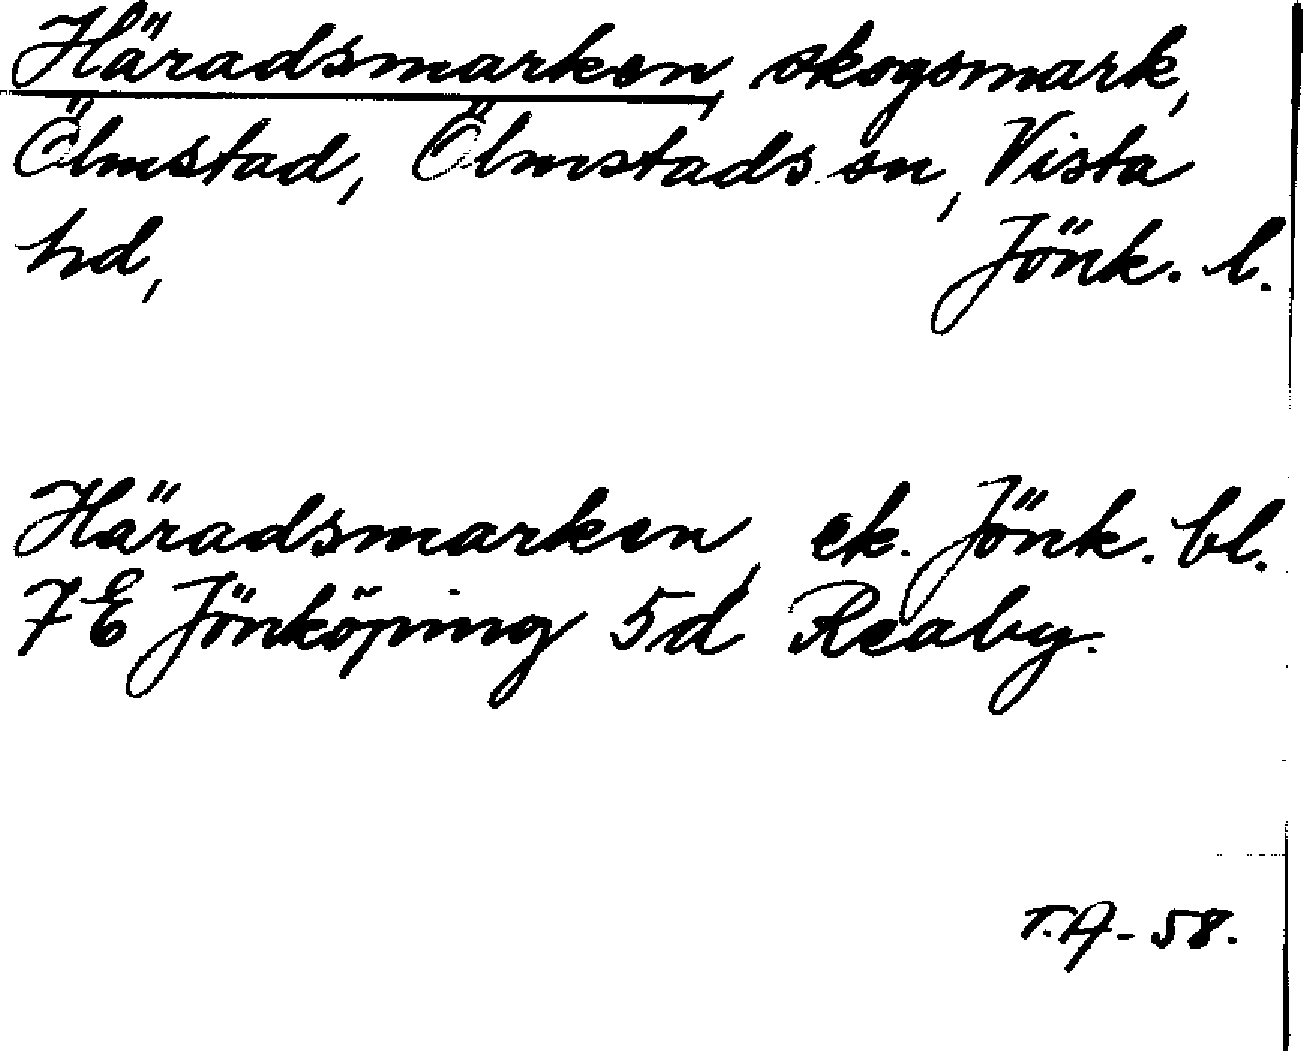 Häradsmarken, skogsmark,
Ölmstad, Ölmstads sn, Vista
hd, Jönk. l.
Häradsmarken, ek. Jönk. bl.
7E Jönköping 5d Reaby.
T.A-58.